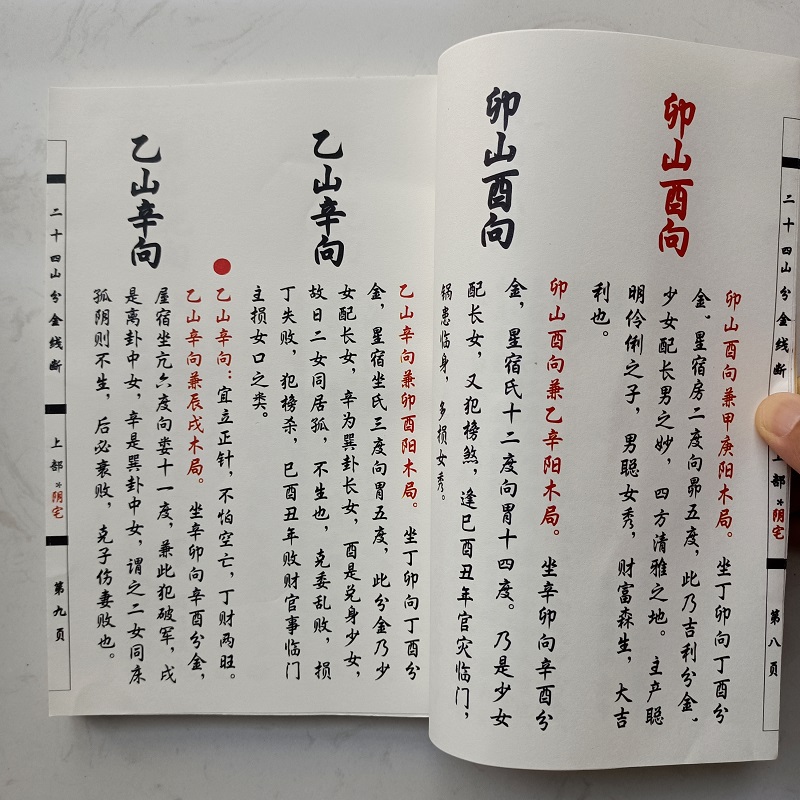 二十四山分金线断
上部*阴宅
第八页
卯山酉向
卯山酉向兼甲庚阳木局。坐丁卯向丁酉分
金、星宿房二度向昴五度，此乃吉利分金、
少女配长男之妙，四方清雅之地。主产聪
明伶俐之子，男聪女秀，财富森生，大吉
利也。
卯山酉向
卯山酉向兼乙辛阳木局。坐辛卯向辛酉分
金，星宿氏十二度向胃十四度。乃是少女
配长女，又犯榜煞，逢巳酉丑年官灾临门，
锅患临身，多损女秀。
乙山辛向
乙山辛向兼卯酉阳木局。坐丁卯向丁酉分
金，星宿坐氏三度向胃五度，此分金乃少
女配长女，辛为巽卦长女，酉是兑身少女，
故曰二女同居孤，不生也，克委乱败，损
丁失败，犯榜杀，巳酉丑年败财官事临门
主损女口之类。
乙山辛向
乙山辛向：宜立正针，不怕空亡，丁财两旺。
乙山辛向兼辰戌木局。坐辛卯向辛酉分金，
屋宿坐亢六度向娄十一度，兼此犯破军，戌
是离卦中女，辛是巽卦中女，谓之二女同床
孤阴则不生，后必衰败，克子伤妻败也。
二十四山分金线断
上部*阴宅
第九页